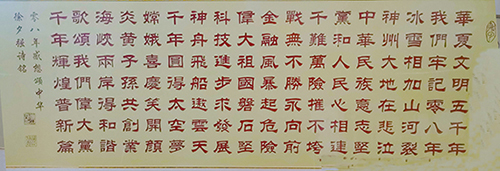 華夏文明五千年
我們牢記零八年
冰雪相加山河裂
神州大地在悲泣
中華民族意志堅
黨和人民心相連
千難萬險摧不垮
戰無不勝永向前
金融風暴起危險
偉大祖國磐石堅
科技進步求發展
神舟飛船遨雲天
千年圓得太空夢
嫦娥喜慶笑開顏
炎黃子孫共創業
海峽兩岸得和諧
歌頌我們偉大黨
千年輝煌普新篇
零八年感想頌中华